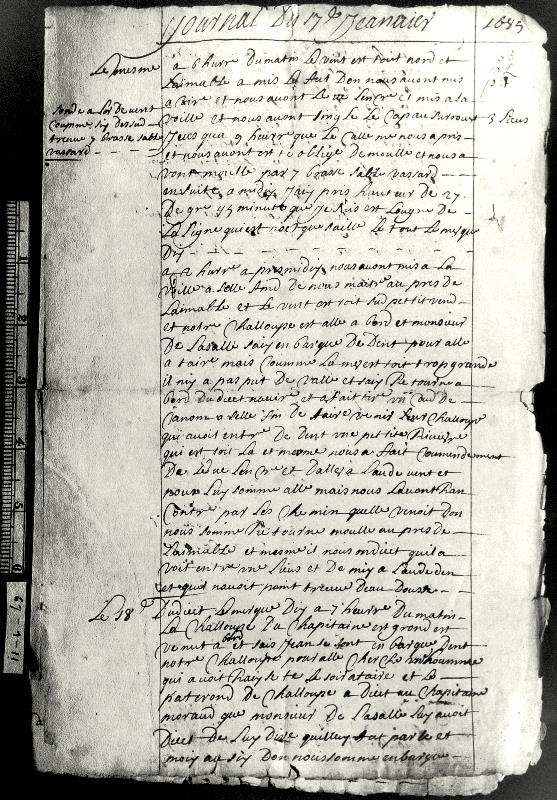 Journal Du 17e Jeanvier 1685
Le mesme
a 6 hurre Du matin Le vint est tout nord et
Laimable a mis Le fut Don nous avont mis
a vire et nous avont Le ve Lencre et mis a la
voille et nous avont single Le Cap au surouest
3 Lieus
Sonde a Loi de vent
Coumme siy dessud
treuve 7 brasse sable
vassard
Jucqua 9 heurre que Le Calle me nous a pris
et nous avont esté oblige De moulle et nous a
vont moulle par 7 brasse sable vassard
en suite a midy Jaiy pris hauteur de 27
De gre 45 minute que Je suis est Longne De
La Ligne qui est noct que saille Le tout Le mesque
Diy
a 2 hurre apres midiy nous avont mis a La
voille a selle find De nous maitre au pres de
Laimable et Le vint est toit sud pettit vend
et notre Challoupe est alle a bord et monsieur
De Lasalle saiy en barque De Dent pour alle
a taire mais Coumme La mer est toit trop grande
il niy a pas put De valle et saiy Re tourne a
bord du diect navire et a fait tire vn Cud de
Canom a selle fin de faire venir Leur Challoupe
qui avoit entre De Dent vne petite Riviere
qui est toit La et mesme nous a fait Coumandement
Da Leve Lencre et Dalles a Laude vent et
nous Luy somme alle mais nous Lavont Ran
Contre par Les Che min quelle venoit Don
nous somme Re tourne moulle au pres de
Laimable et mesme il nous on diect quil a
voit entre vne Lieus et De miy a Laude den
et quis navoit point treuve Deau Dousse
Le 18e
Dudict Le mesque Diy a 7 heurre Du matin
La Challoupe Du Chapitaine est grond est
venut a bord et sais Jean se sont en barque Dent
notre Challoupe pour alle Cherche Lhoumme
qui avoit Le soiraitaire et Le
paterond De Challoupe a Diect au Chapitaine
moraud que monsieur De Lasalle Luy avoit
Diect De Luy Dire quilluy fut parle et
moiy au siy Don nous somme enbarque